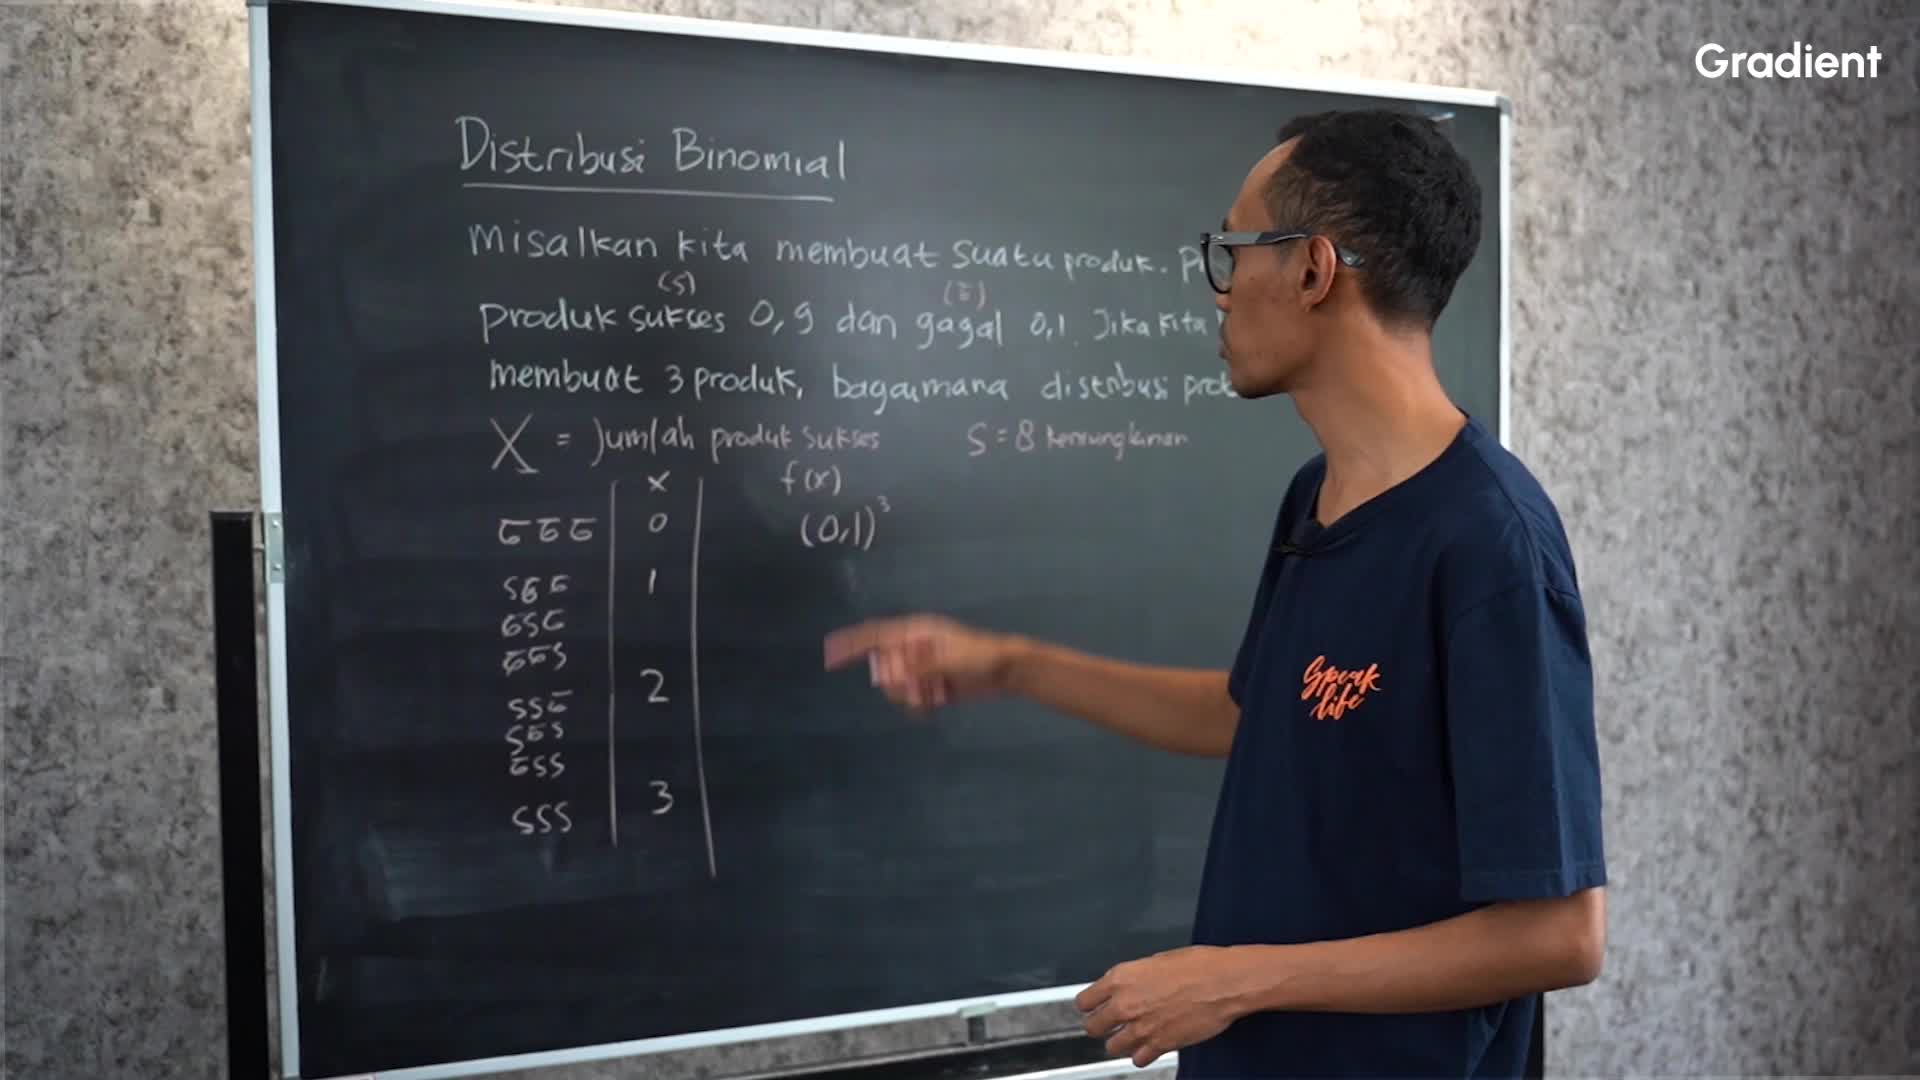 Gradient
Distribusi Binomial
Misalkan kita membuat suatu produk.
(S)
(G)
produk sukses 0,9 dan gagal 0,1. Jika kita
membuat 3 produk, bagaimana distribusi
X = Jumlah produk sukses
S = 8 kemungkinan
x f(x)
GGG 0 (0,1)³
SGG 1
GSG
GGS
SSG 2
SGS
GSS
SSS 3
Speak
life